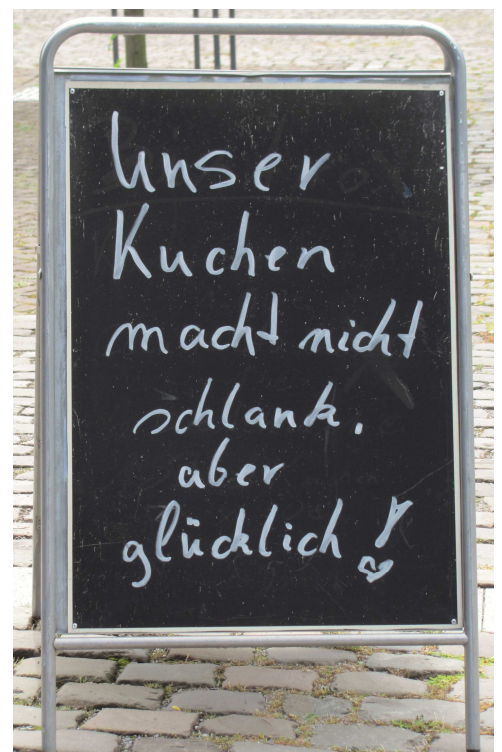 Unser
Kuchen
macht nicht
schlank,
aber
glücklich!